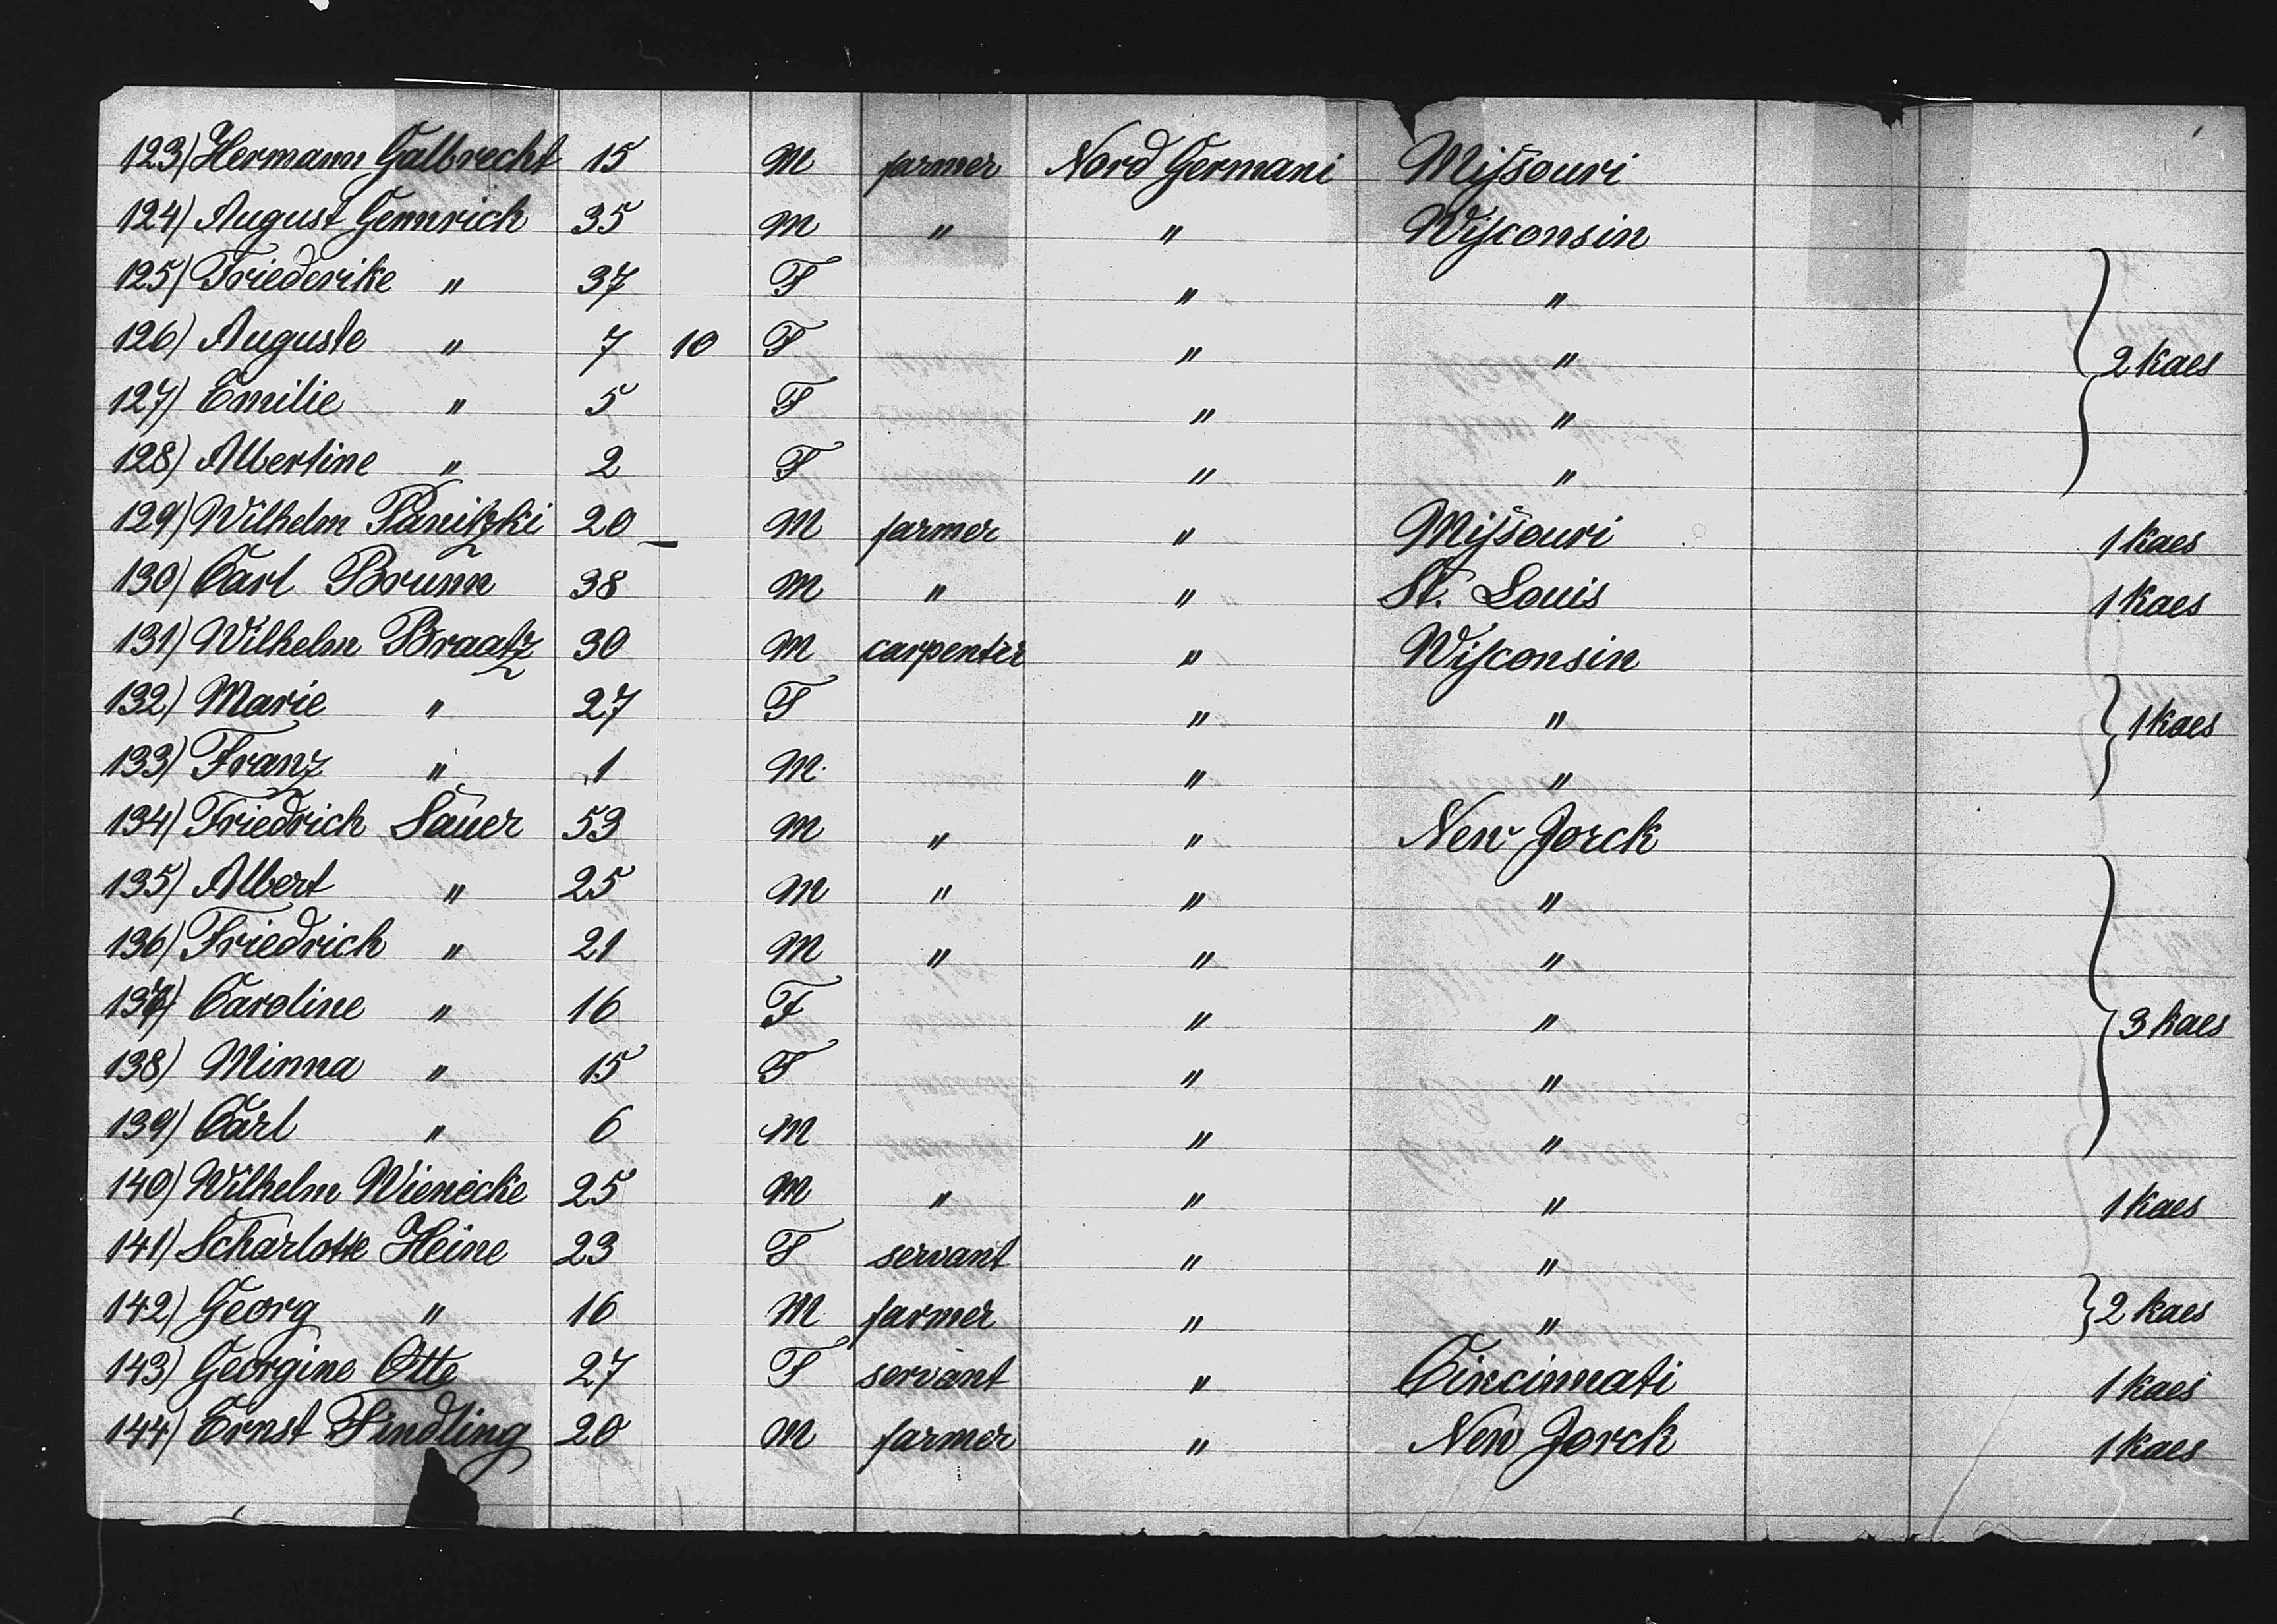 123) Hermann Galbrecht 15 M farmer Nord Germani Missouri
124) August Gennrich 35 M " " Wisconsin
125) Friederike " 37 F " "
126) Auguste " 7 10 F " " 2 kaes
127) Emilie " 5 F " "
128) Albertine " 2 F " "
129) Wilhelm Panitzki 20 M farmer " Missouri 1 kaes
130) Carl Brunn 38 M " " St. Louis 1 kaes
131) Wilhelm Braatz 30 M carpenter " Wisconsin
132) Marie " 27 F " " 1 kaes
133) Franz " 1 M " "
134) Friedrich Sauer 53 M " " New Jorck
135) Albert " 25 M " " "
136) Friedrich " 21 M " " "
137) Caroline " 16 F " " 3 kaes
138) Minna " 15 F " "
139) Carl " 6 M " "
140) Wilhelm Wienecke 25 M " " " 1 kaes
141) Scharlotte Heine 23 F servant " "
142) Georg " 16 M farmer " " 2 kaes
143) Georgine Otte 27 F servant " Cincinnati 1 kaes
144) Ernst Findling 20 M farmer " New Jorck 1 kaes